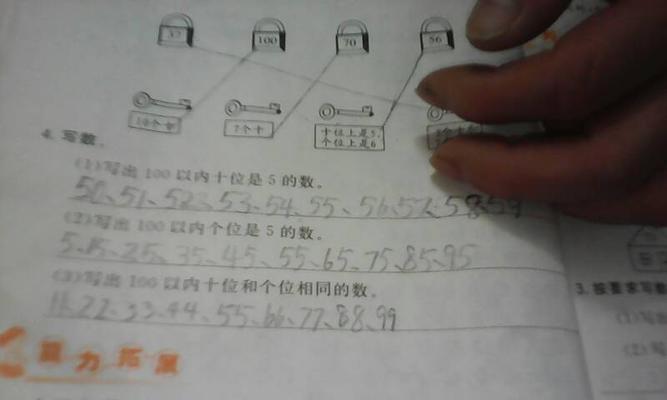 32 100 70 56
10个十 7个十 十位上是5, 个位上是6
4. 写数。
(1)写出 100 以内十位是 5 的数。
50、51、52、53、54、55、56、57、58、59
(2)写出 100 以内个位是 5 的数。
5、15、25、35、45、55、65、75、85、95
(3)写出 100 以内十位和个位相同的数。
11、22、33、44、55、66、77、88、99
3. 按要求写数
(1)写出
(2)写
能力拓展